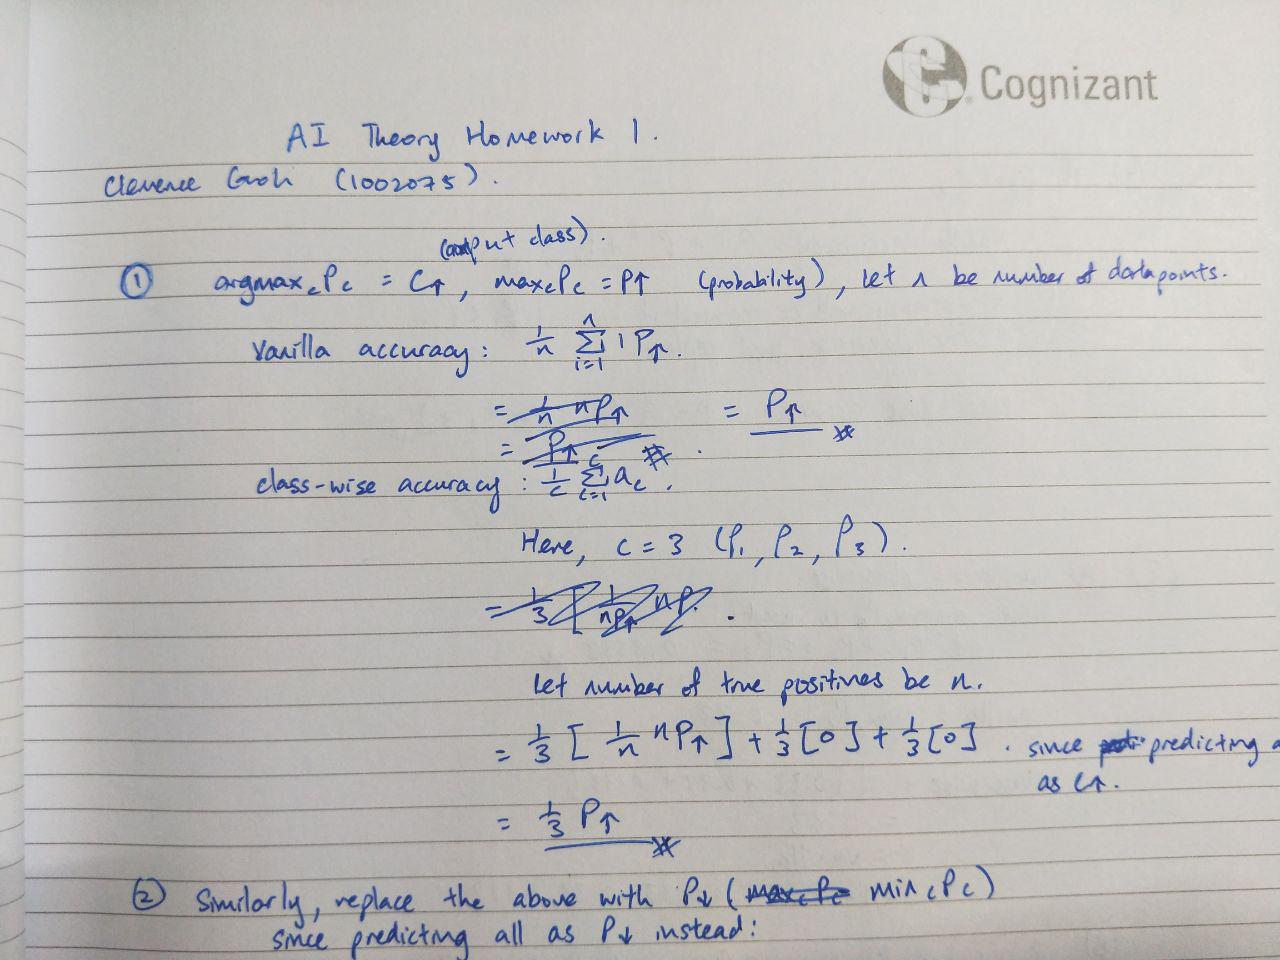 Cognizant
AI Theory Homework 1.
Clemence Goh (1002075).
(output class).
① argmax_c P_c = C↑, max_c P_c = P↑ (probability), Let n be number of datapoints.
Vanilla accuracy: 1/n Σ_{i=1}^{n} 1 P↑.
= 1/n nP↑ = P↑
= P↑
class-wise accuracy: 1/C Σ_{c=1}^{C} a_c.
Here, C = 3 (P₁, P₂, P₃).
= 1/3 [ 1/nP↑ nP.
Let number of true positives be n.
= 1/3 [ 1/n nP↑ ] + 1/3 [0] + 1/3 [0]. since predicting a
as C↑.
= 1/3 P↑
② Similarly, replace the above with P↓ (max_c P_c min_c P_c)
since predicting all as P↓ instead: